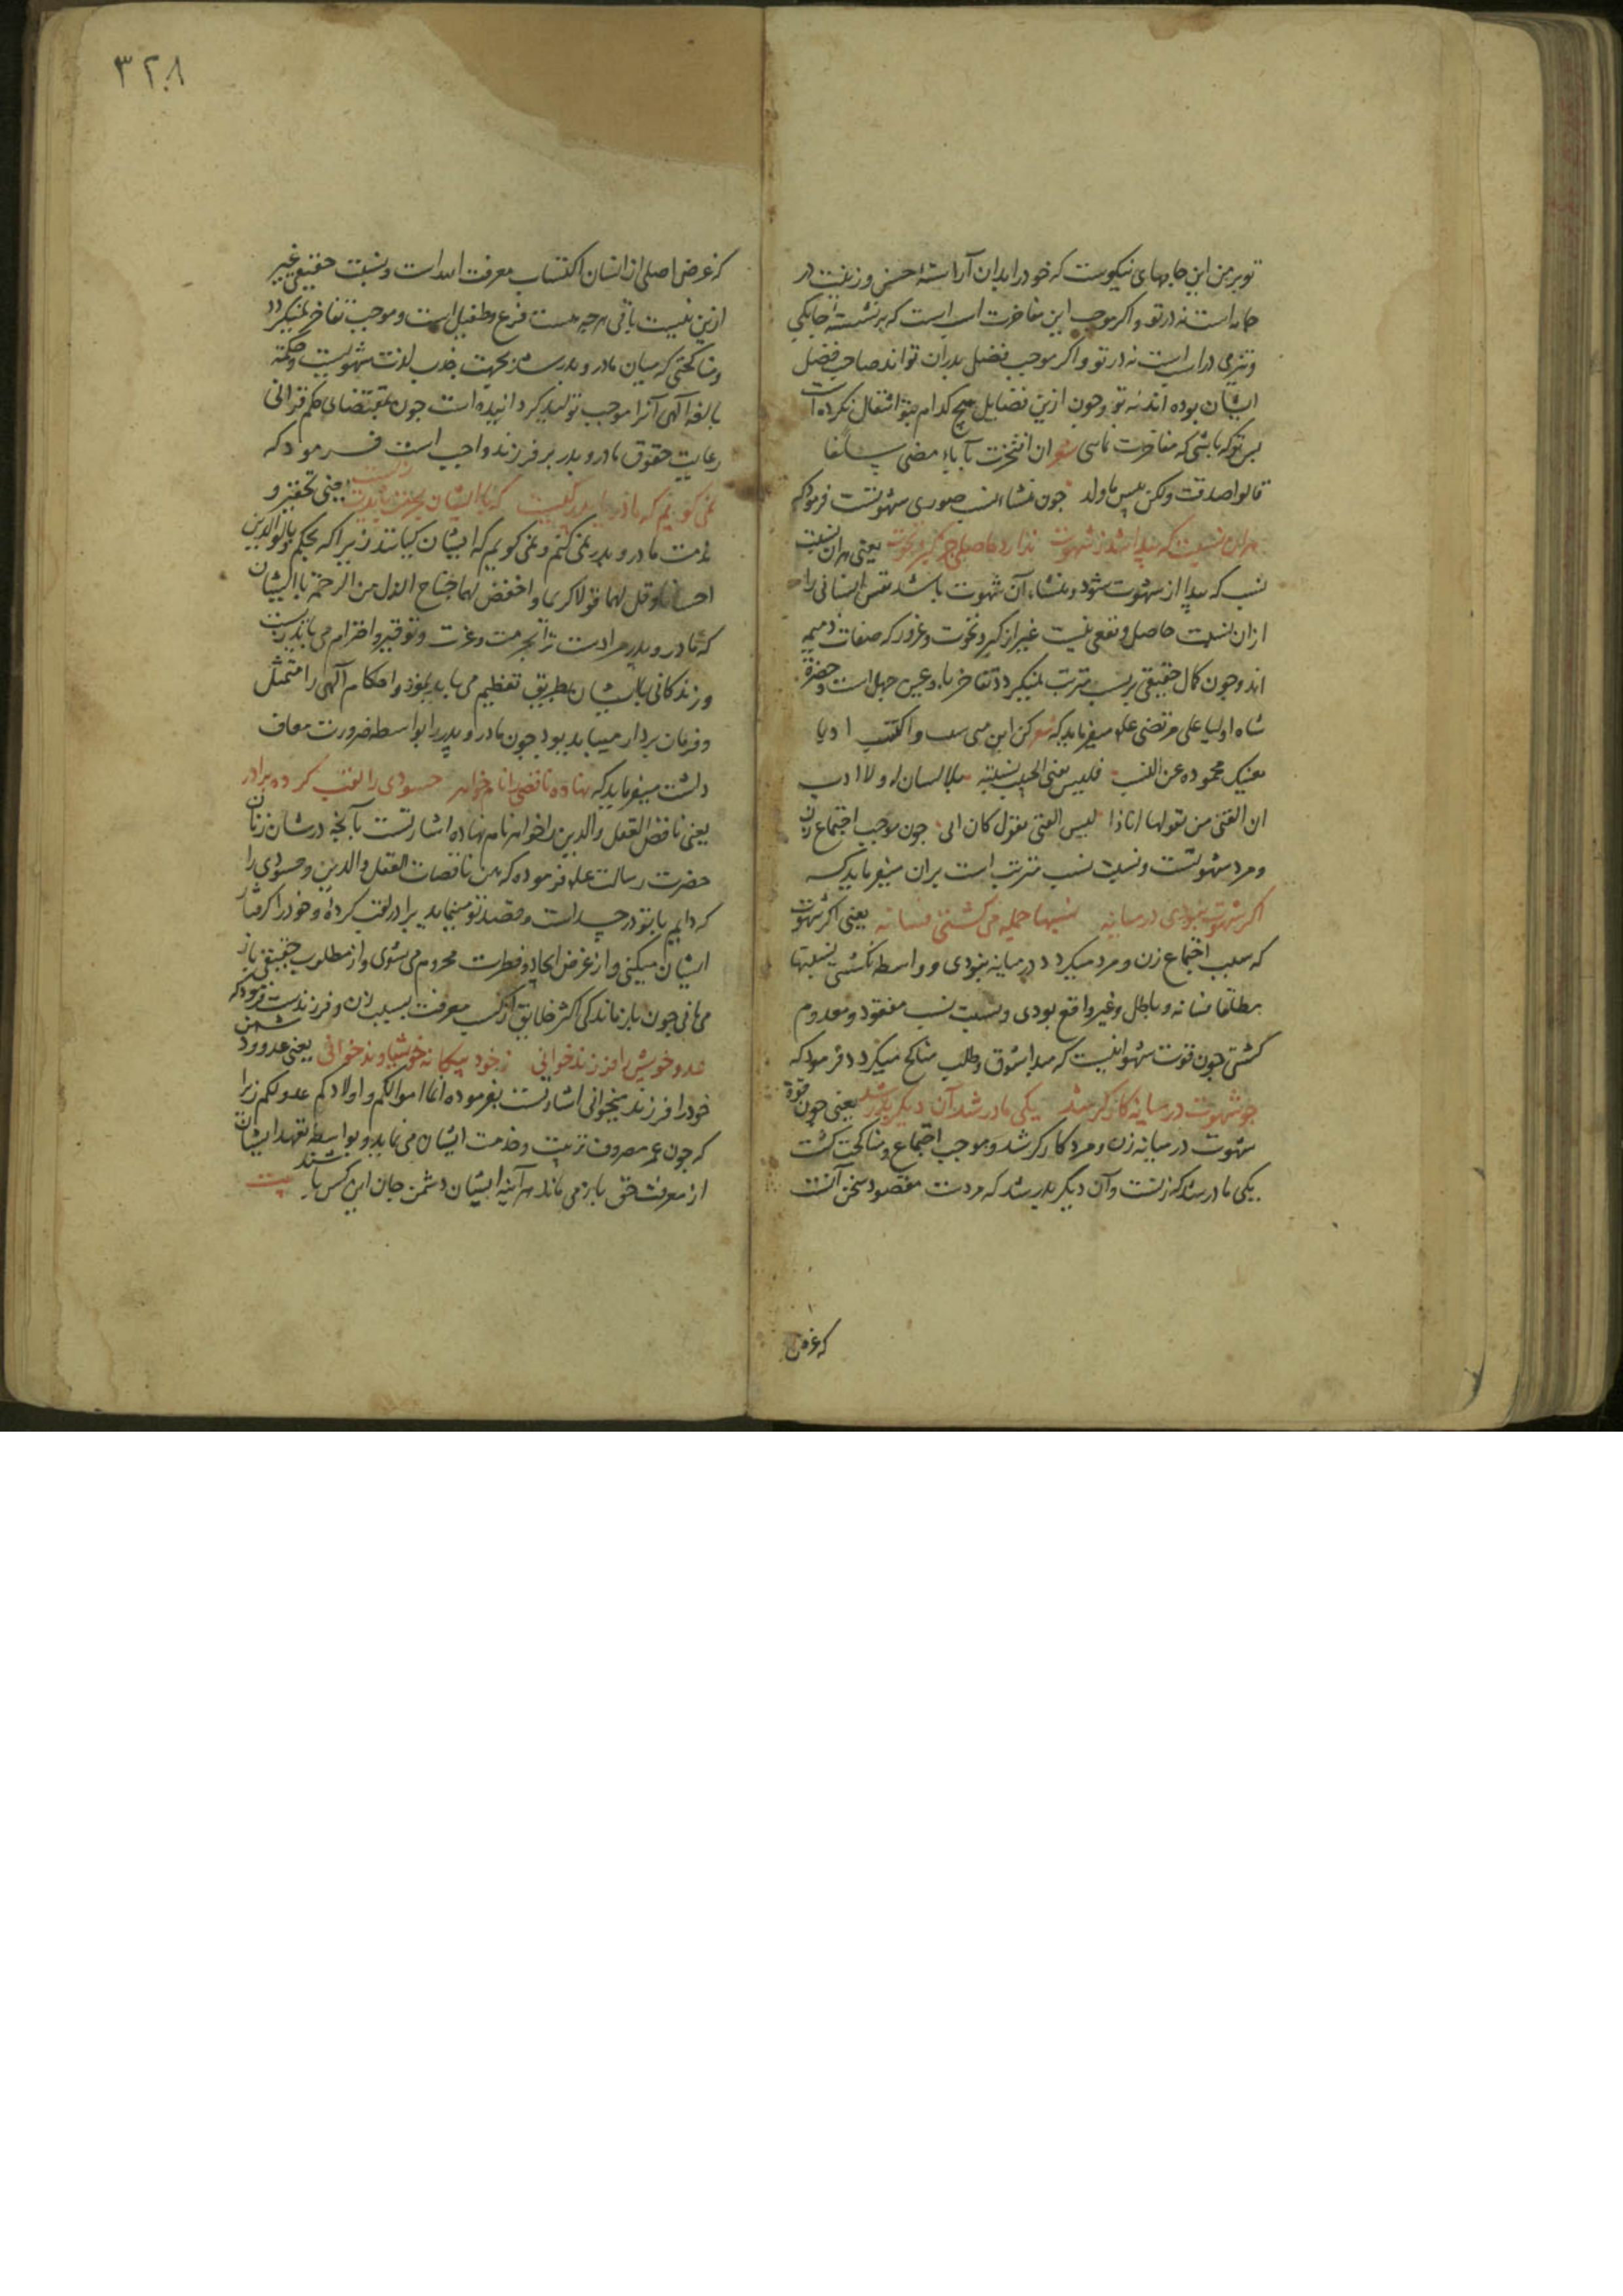 تو بر من این جامهای نیکوست که خود را بدان آراستهٔ حسن و زینت در
جامه است نه در تو و اکر موجب این مفاخرت اسب است که بر نشستهٔ چابکی
و تیزی در اسب است نه در تو و اکر موجب فضل پدران تواند صاحب فضل
ایشان بوده اند نه تو و چون ازین فضایل هیچ کدام بتو انتقال نکرده است
پس تو که باشی که مفاخرت نمایی شعر ان افتخرت بآباء مضی سلفا
قالوا صدقت ولکن بیس ما ولد چون منشاء نسب صوری شهوتست فرمود که
هران نسبت که پیدا شد ز شهوت ندارد حاصلی جز کبر و نخوت یعنی هران نسبت
نسب که پیدا از شهوت شود و منشاء آن شهوت باشد نفس انسانی را
ازان نسبت حاصل و نفعی نیست غیر از کبر و نخوت و غرور که صفات ذمیمه
اند و چون کمال حقیقی بر نسب مترتب نمیکردد تفاخر باو عین جهل است و حضرة
شاه اولیا علی مرتضی علیه میفرماید که شعر کن ابن من شئت واکتسب ادبا
یغنیک محموده عن النسب فلیس یغنی الحسیب نسبته بلا لسان له ولا ادب
ان الفتی من یقول ها انا ذا لیس الفتی من یقول کان ابی چون موجب اجتماع زن
و مرد شهوتست و نسبت نسب مترتب است بران میفرماید که
اکر شهوت نبودی در میانه نسبها جمله می کشتی فسانه یعنی اکر شهوت
که سبب اجتماع زن و مرد میکردد در میانه نبودی و واسطه نکشتی نسبتها
مطلقا فسانه و باطل و غیر واقع بودی و نسبت نسب مفقود و معدوم
کشتی چون قوت شهوانیست که مبدا شوق و طلب مناکح میکردد فرمود که
چو شهوت در میانه کارکر شد یکی مادر شد آن دیکر پدر شد یعنی چون قوة
شهوت در میانه زن و مرد کارکر شد و موجب اجتماع و مناکحت کشت
یکی مادر شد که زنست و آن دیکر پدر شد که مردست مقصود سخن آنست
که غرض
٣٢٨
که غرض اصلی از انسان اکتساب معرفت الله است و نسبت حقیقی غیر
ازین نیست باقی هر چه هست فرع و طفیل است و موجب تفاخر نمیکردد
و مناکحتی که میان مادر و پدر شد بجهت جذب لذت شهویست و حکمة
بالغه آلهی آنرا موجب تولید کردانیده است چون بمقتضای حکم قرآنی
رعایت حقوق مادر و پدر بر فرزند واجب است فرمود که
نمی کویم که مادر یا پدر کیست که با ایشان بحرمت بایدت زیست یعنی تحقیر و
مذمت مادر و پدر نمی کنم و نمی کویم که ایشان کیانند زیرا که بحکم و بالوالدین
احسانا و قل لهما قولا کریما و اخفض لهما جناح الذل من الرحمة با ایشان
که مادر و پدر مرادست ترا بحرمت و عزت و توقیر و احترام می باید زیست
و زندکانی با ایشان بطریق تعظیم می باید نمود و احکام آلهی را متمثل
و فرمان بردار میباید بود چون مادر و پدر را بواسطه ضرورت معاف
داشت میفرماید که نهاده ناقصی را نام خواهر حسودی را لقب کرده برادر
یعنی ناقص العقل والدین را خواهر نام نهاده اشارتست بآنچه در شان زنان
حضرت رسالت علیه فرموده که هن ناقصات العقل والدین و حسودی را
که دایم با تو در حسد است و قصد تو مینماید برادر لقب کرده و خود را کرفتار
ایشان میکنی و از غرض ایجاد و فطرت محروم می شوی و از مطلوب حقیقی باز
می مانی چون باز ماندکی اکثر خلایق از کسب معرفت بسبب زن و فرزندست فرمود که
عدو خویش را فرزند خوانی ز خود بیکانه خویشاوند خوانی یعنی عدو و دشمن
خود را فرزند میخوانی اشارتست بفرموده انما اموالکم و اولادکم عدو لکم زیرا
که چون عمر مصروف تربیت و خدمت ایشان می نماید و بواسطه تعهد ایشان
از معرفت حق باز می ماند هر آینه ایشان دشمن جان این کس باشند بیت